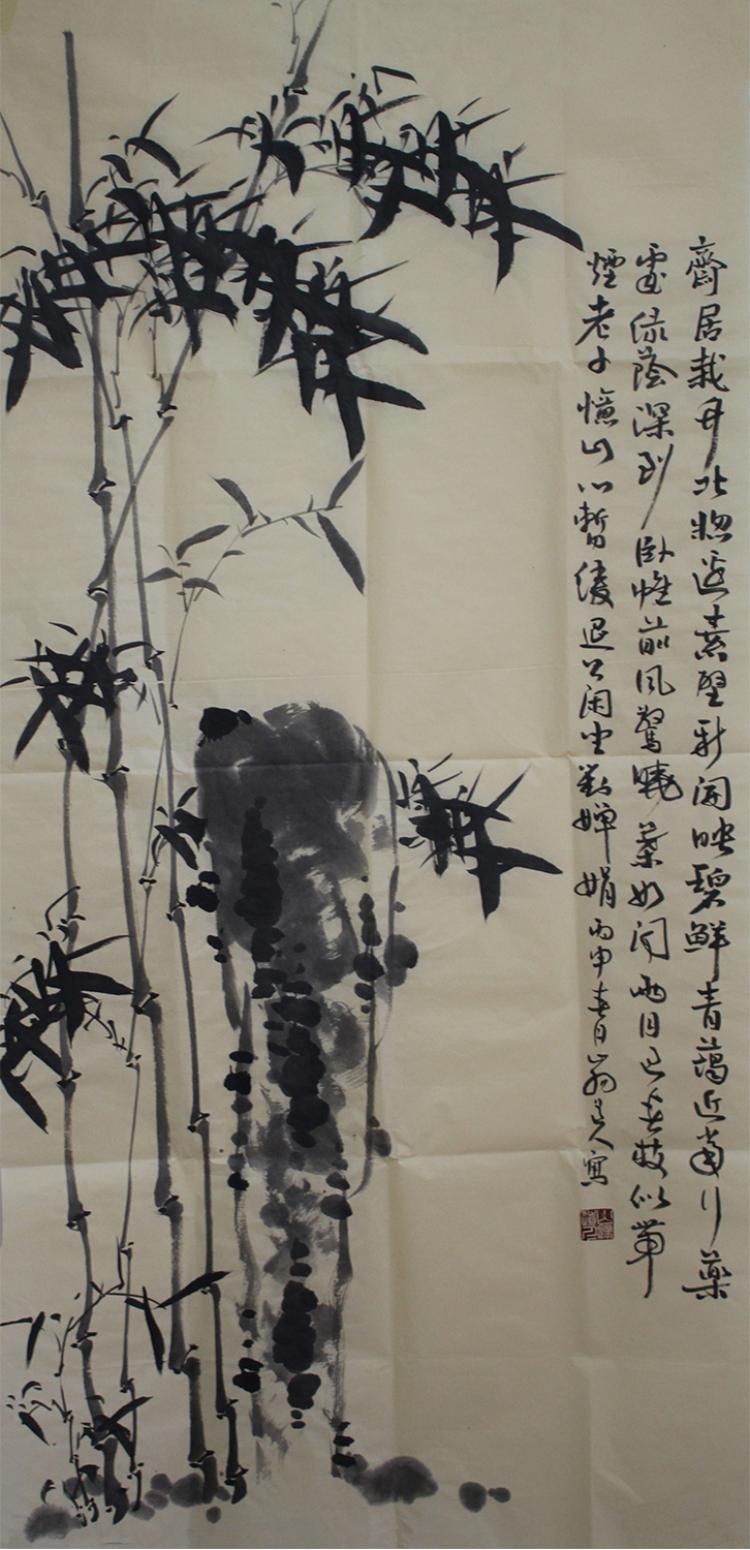 齋居栽竹北牕邊素壁新開映碧鮮青藹近當行藥
處綠蔭深到卧帷前風驚曉葉如聞雨月過春枝似帶
煙老子憶山心暫緩退公闲坐對嬋娟丙申春 人寫